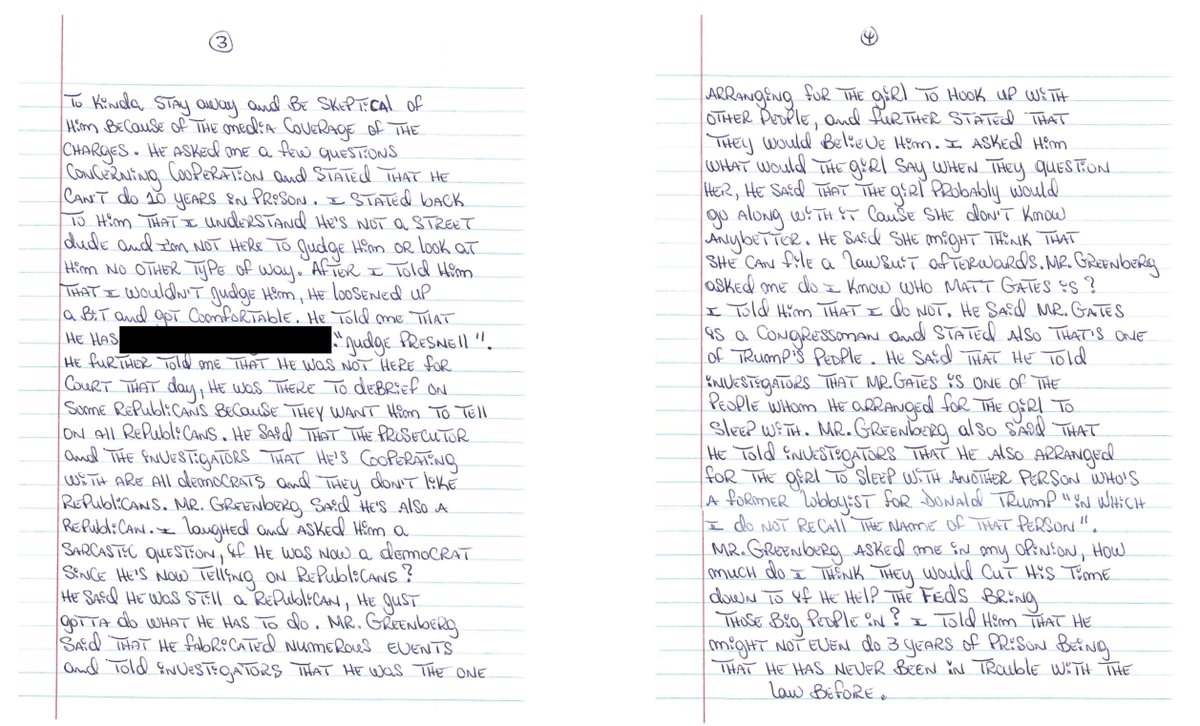 3
To Kinda STAY away and BE SKEPTICAl of
Him BECAUSE of THE media COVERAGE of THE
CHARGES. HE ASKED ME a few QUESTIONS
CONCERNING COOPERATION and STATED THAT HE
CAN'T do 10 YEARS iN PRISON. I STATED BACK
To Him THAT I UNDERSTAND HE'S NOT A STREET
dude and I'm NOT HERE To Judge Him OR look AT
Him NO OTHER TYPE of WAY. AFTER I Told Him
THAT I WOULDN'T Judge Him, HE looSENEd UP
a BiT and goT ComfoRTABlE. HE Told me THAT
HE HAS "Judge PRESNell".
HE fuRTHER Told me THAT HE WAS NOT HERE foR
CouRT THAT day, HE WAS THERE To deBRief ON
Some REPUBliCANS BECAUSE THEY WANT Him To Tell
ON All REPUBliCANS. HE SAid THAT THE PROSECUTOR
and THE iNVESTigATORS THAT HE'S COOPERATiNg
WiTH ARE All demoCRATS and THEY doN'T liKE
REPUBliCANS. MR. GREENBERg SAid HE'S Also A
REPUBliCAN. I laugHed and ASKED Him a
SARCASTiC QUESTiON, if HE WAS NOW a demoCRAT
SiNCE HE'S NOW TElliNg ON REPUBliCANS?
HE SAid HE WAS STill a REPUBliCAN, HE JuST
goTTA do WHAT HE HAS To do. MR. GREENBERg
SAid THAT HE fABRiCATEd NumERouS EVENTS
and Told iNVESTigATORS THAT HE WAS THE ONE
4
ARRANgiNg foR THE giRl To Hook UP WiTH
OTHER PEOPlE, and fuRTHER STATED THAT
THEY Would BEliEVE Him. I ASKED Him
WHAT Would THE giRl SAY WHEN THEY QUESTiON
HER, HE SAid THAT THE giRl PRoBABly Would
go AloNg WiTH iT CAuSE SHE doN'T KNow
ANYBETTER. HE SAid SHE migHT THiNK THAT
SHE CAN filE a lAWSuiT afTERWARds. MR. GREENBERg
ASKED me do I KNow WHO MATT GATES iS?
I Told Him THAT I do NOT. HE SAid MR. GATES
iS a CoNgRESSmAN and STATED Also THAT'S ONE
of TRump'S PEOPlE. HE SAid THAT HE Told
iNVESTigATORS THAT MR. GATES iS ONE of THE
PEOPlE WHOM HE ARRANgEd foR THE giRl To
SlEEP WiTH. MR. GREENBERg Also SAid THAT
HE Told iNVESTigATORS THAT HE Also ARRANgEd
foR THE giRl To SlEEP WiTH ANOTHER PERSON WHO'S
A foRMER loBByiST foR DONAld TRump "iN WHiCH
I do NOT RECAll THE NAmE of THAT PERSON".
MR. GREENBERg ASKED me iN my OPiNiON, HOW
mucH do I THiNK THEY Would CuT HiS TimE
dowN To if HE HElP THE FEdS BRiNg
THOSE Big PEOPlE iN? I Told Him THAT HE
migHT NOT EVEN do 3 YEARS of PRiSON BEiNg
THAT HE HAS NEVER BEEN iN TRouBlE WiTH THE
lAW BEfoRE.